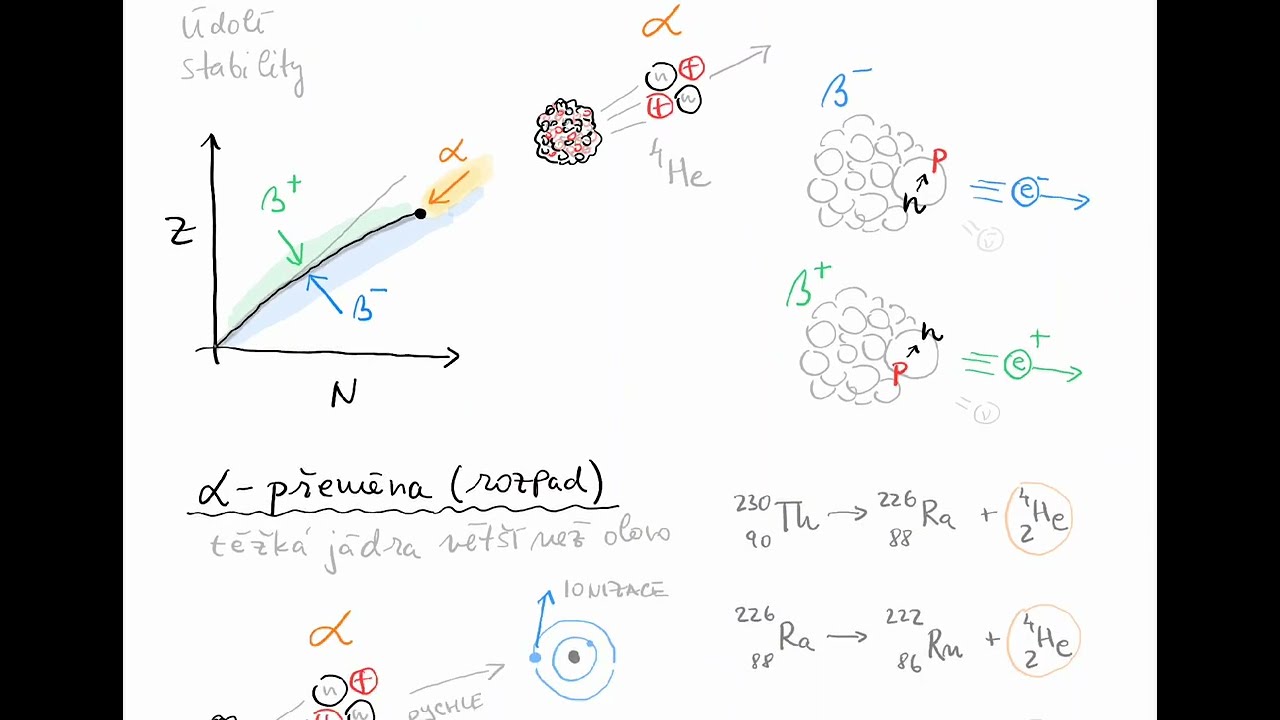 Údolí
stability
α
n +
+ n
⁴He
Z
N
β⁺
α
β⁻
β⁻
p
n
e⁻
ν̄
β⁺
n
p
e⁺
ν
α-přeměna (rozpad)
těžká jádra větší než olovo
²³⁰₉₀Th → ²²⁶₈₈Ra + ⁴₂He
²²⁶₈₈Ra → ²²²₈₆Rn + ⁴₂He
α
n +
+ n
RYCHLE
IONIZACE